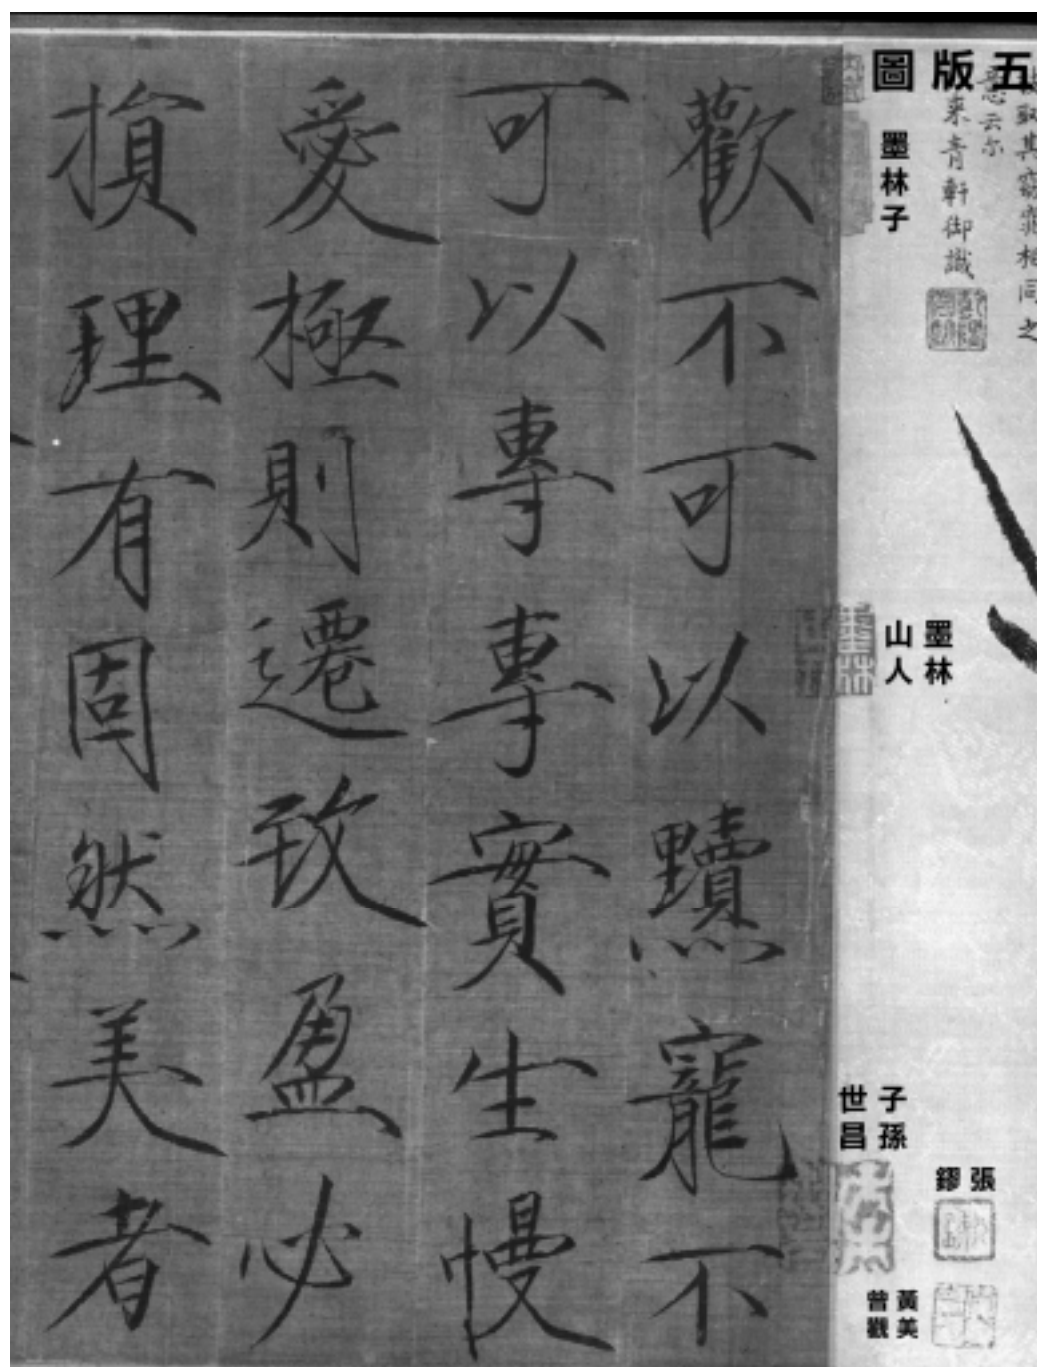 圖版五
取其窈窕相同之
意云尔
来青軒御識
墨林子
墨林
山人
子孫
世昌
張鏐
黃美
曾觀
歡不可以黷寵不
可以專專實生慢
愛極則遷致盈必
損理有固然美者